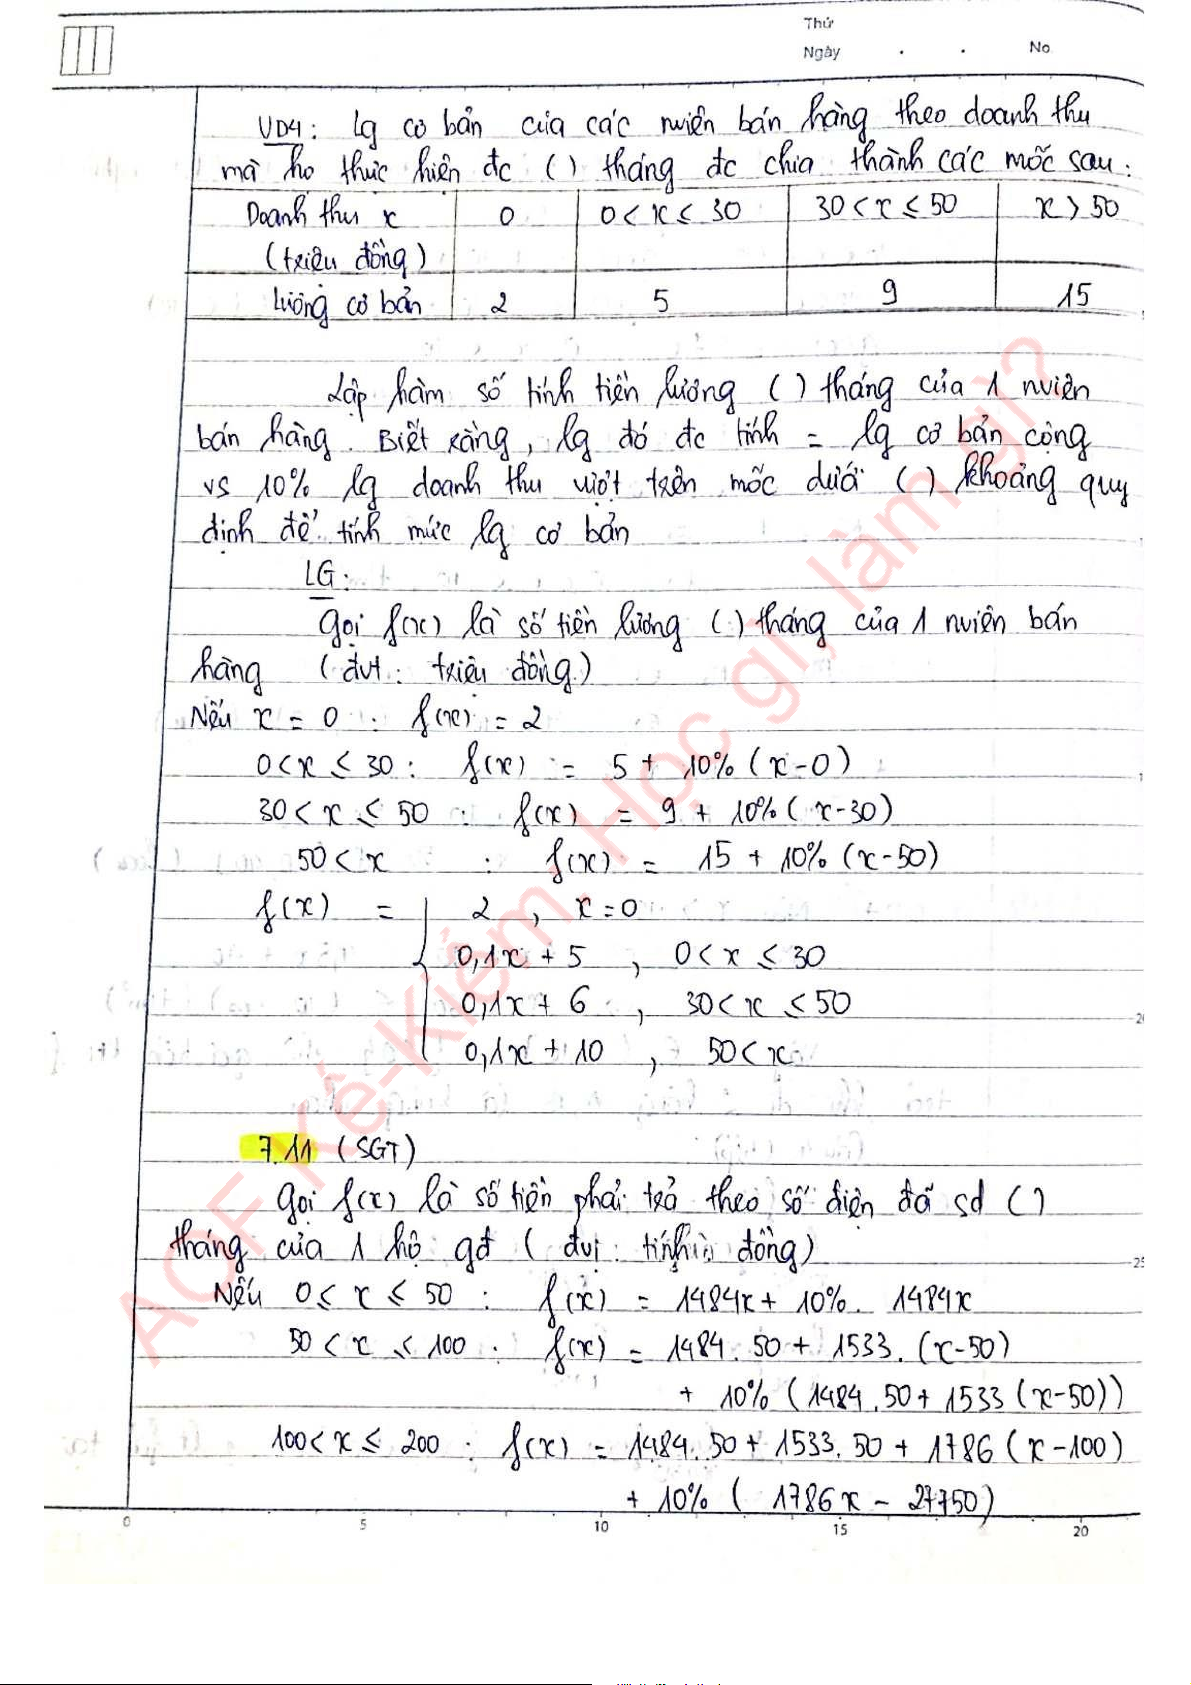 Thứ
Ngày . . No
VD4: lg cơ bản của các nviên bán hàng theo doanh thu
mà họ thực hiện đc ( ) tháng đc chia thành các mốc sau:
Doanh thu x (triệu đồng) 0 0 < x ≤ 30 30 < x ≤ 50 x > 50
Lương cơ bản 2 5 9 15
Lập hàm số tính tiền lương ( ) tháng của 1 nviên
bán hàng. Biết rằng, lg đó đc tính = lg cơ bản cộng
vs 10% lg doanh thu vượt trên mốc dưới ( ) khoảng quy
định để tính mức lg cơ bản
LG:
Gọi f(x) là số tiền lương ( ) tháng của 1 nviên bán
hàng (đvt: triệu đồng)
Nếu x = 0 : f(x) = 2
0 < x ≤ 30 : f(x) = 5 + 10% (x-0)
30 < x ≤ 50 : f(x) = 9 + 10% (x-30)
50 < x : f(x) = 15 + 10% (x-50)
f(x) = { 2 , x = 0
0,1x + 5 , 0 < x ≤ 30
0,1x + 6 , 30 < x ≤ 50
0,1x + 10 , 50 < x
7.11 (SGT)
Gọi f(x) là số tiền phải trả theo số điện đã sd ( )
tháng của 1 hộ gđ ( đvị : đồng)
Nếu 0 ≤ x ≤ 50 : f(x) = 1484x + 10%. 1484x
50 < x ≤ 100 : f(x) = 1484.50 + 1533.(x-50)
+ 10% (1484.50 + 1533 (x-50))
100 < x ≤ 200 : f(x) = 1484.50 + 1533.50 + 1786 (x-100)
+ 10% ( 1786x - 27750)
0 5 10 15 20
20
25
AOF Kế-Kiểm. Học gì, làm gì?